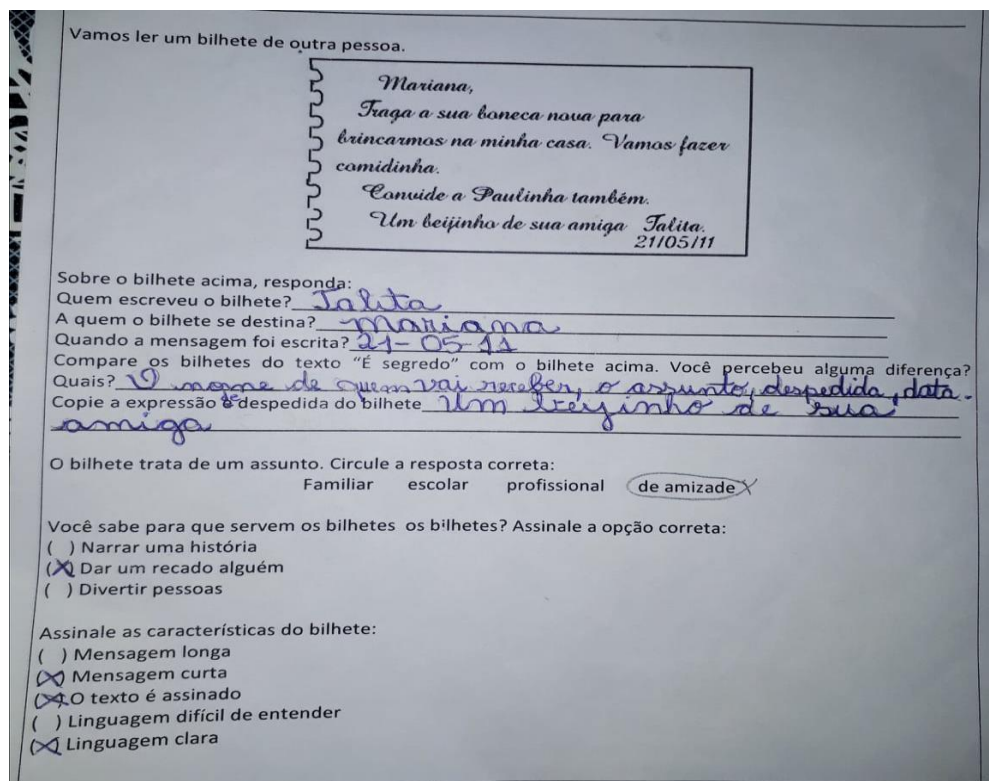 Vamos ler um bilhete de outra pessoa.
Mariana,
Traga a sua boneca nova para
brincarmos na minha casa. Vamos fazer
comidinha.
Convide a Paulinha também.
Um beijinho de sua amiga Talita.
21/05/11
Sobre o bilhete acima, responda:
Quem escreveu o bilhete? Talita
A quem o bilhete se destina? Mariana
Quando a mensagem foi escrita? 21-05-11
Compare os bilhetes do texto “É segredo” com o bilhete acima. Você percebeu alguma diferença?
Quais? O nome de quem vai receber, o assunto, despedida, data.
Copie a expressão de despedida do bilhete Um beijinho de sua
amiga
O bilhete trata de um assunto. Circule a resposta correta:
Familiar escolar profissional de amizade X
Você sabe para que servem os bilhetes os bilhetes? Assinale a opção correta:
( ) Narrar uma história
(X) Dar um recado alguém
( ) Divertir pessoas
Assinale as características do bilhete:
( ) Mensagem longa
(X) Mensagem curta
(X) O texto é assinado
( ) Linguagem difícil de entender
(X) Linguagem clara